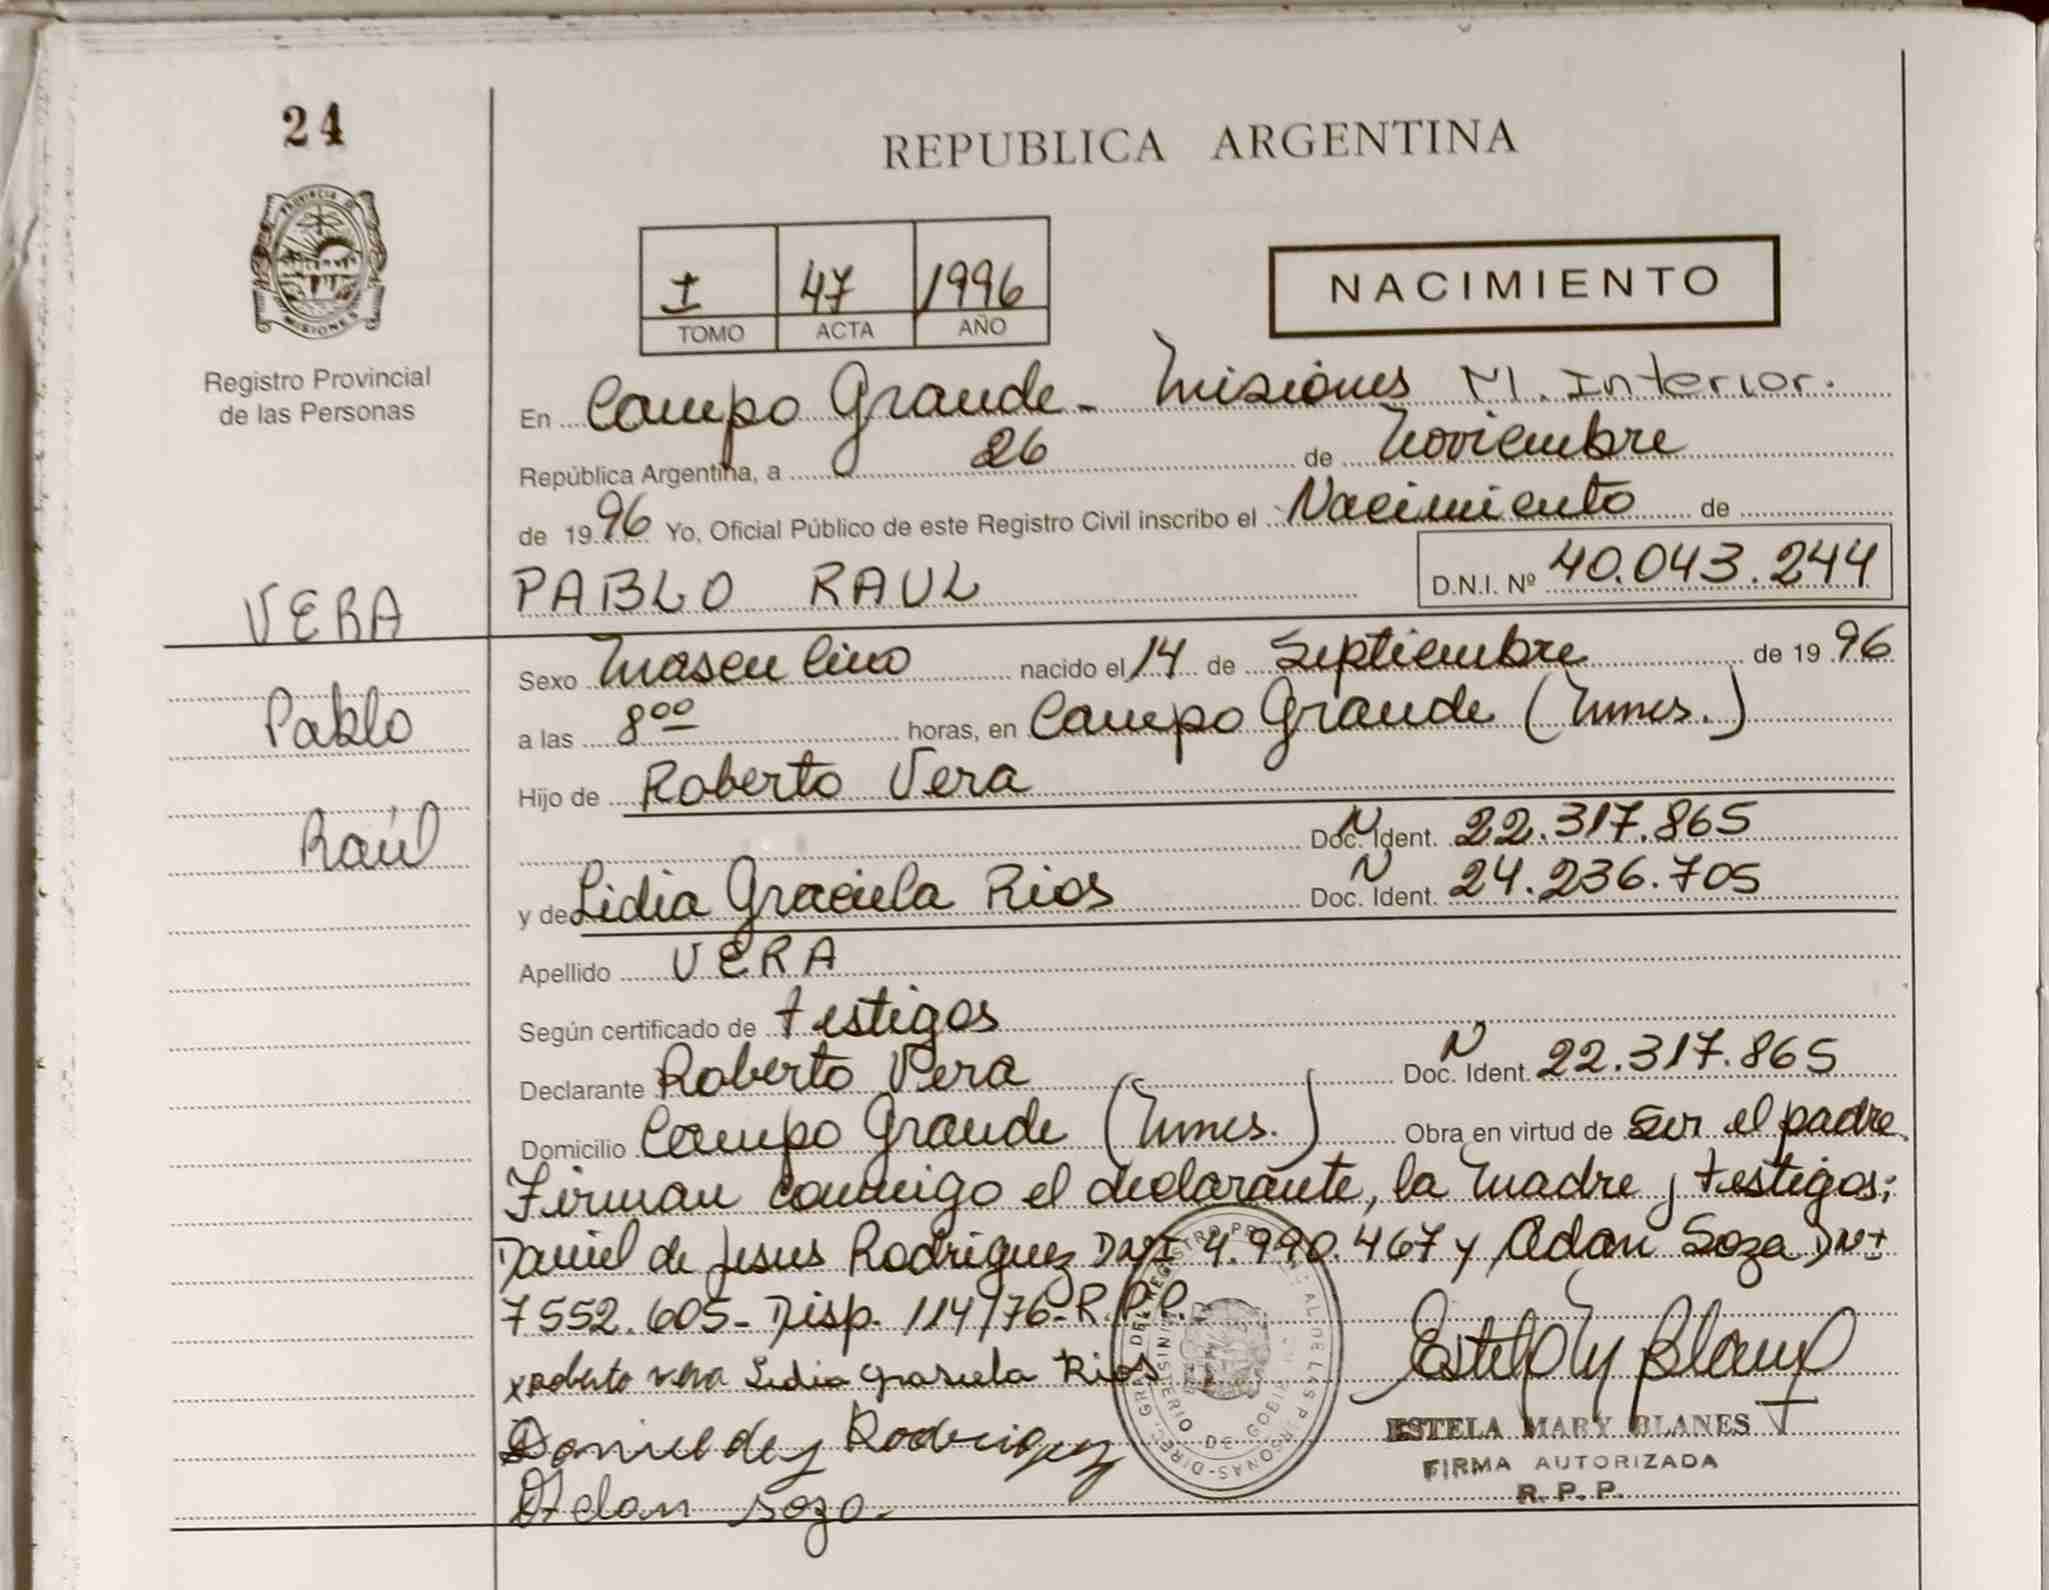 24
PROVINCIA DE
MISIONES
Registro Provincial
de las Personas
VERA
Pablo
Raúl
REPUBLICA ARGENTINA
I 47 1996
TOMO ACTA AÑO
NACIMIENTO
En Campo Grande - Misiones M. Interior.
República Argentina, a 26 de Noviembre
de 1996 Yo, Oficial Público de este Registro Civil inscribo el Nacimiento de
PABLO RAUL D.N.I. Nº 40.043.244
Sexo Masculino nacido el 14 de Septiembre de 1996
a las 8⁰⁰ horas, en Campo Grande (Mnes.)
Hijo de Roberto Vera
Doc. N Ident. 22.317.865
y de Lidia Graciela Rios Doc. N Ident. 24.236.705
Apellido VERA
Según certificado de testigos
Declarante Roberto Vera Doc. N Ident. 22.317.865
Domicilio Campo Grande (Mnes.) Obra en virtud de ser el padre.
Firman conmigo el declarante, la madre y testigos;
Daniel de Jesus Rodriguez DNI 4.990.467 y Adan Soza DNI
7552.605- Disp. 114/76-R.P.P.
x Roberto Vera Lidia Grasiela Rios
Daniel de J Rodriguez
Adan Sozo
ESTELA MARY BLANES
FIRMA AUTORIZADA
R. P. P.